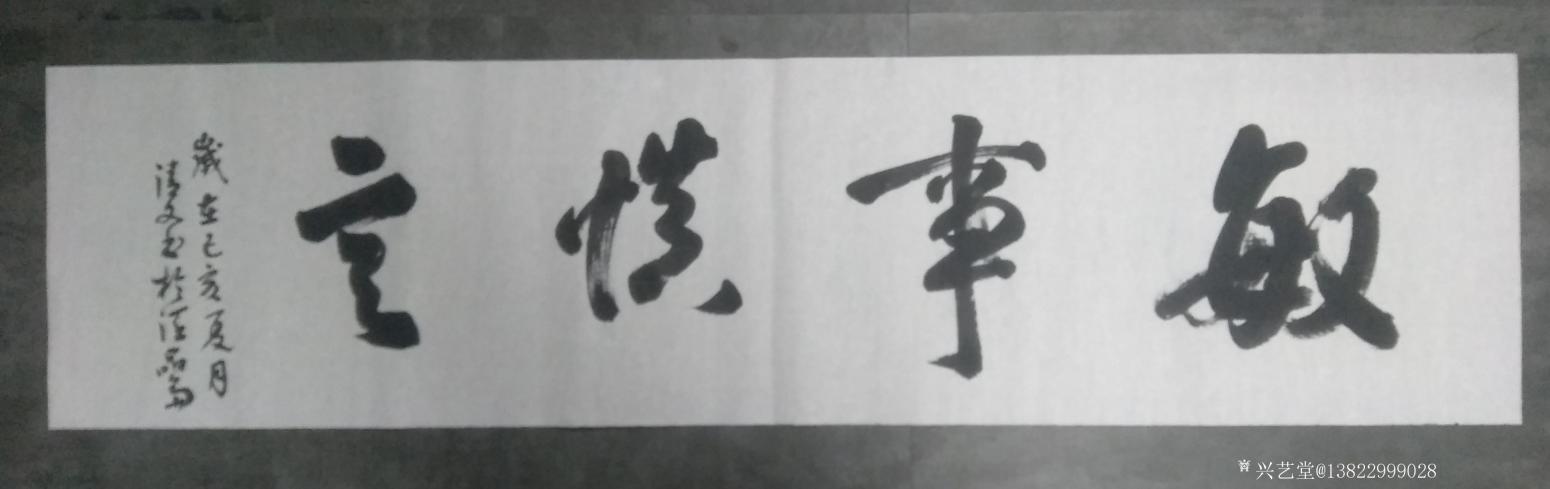 敏事慎言
歲在己亥夏月
清文書於
兴艺堂@13822999028